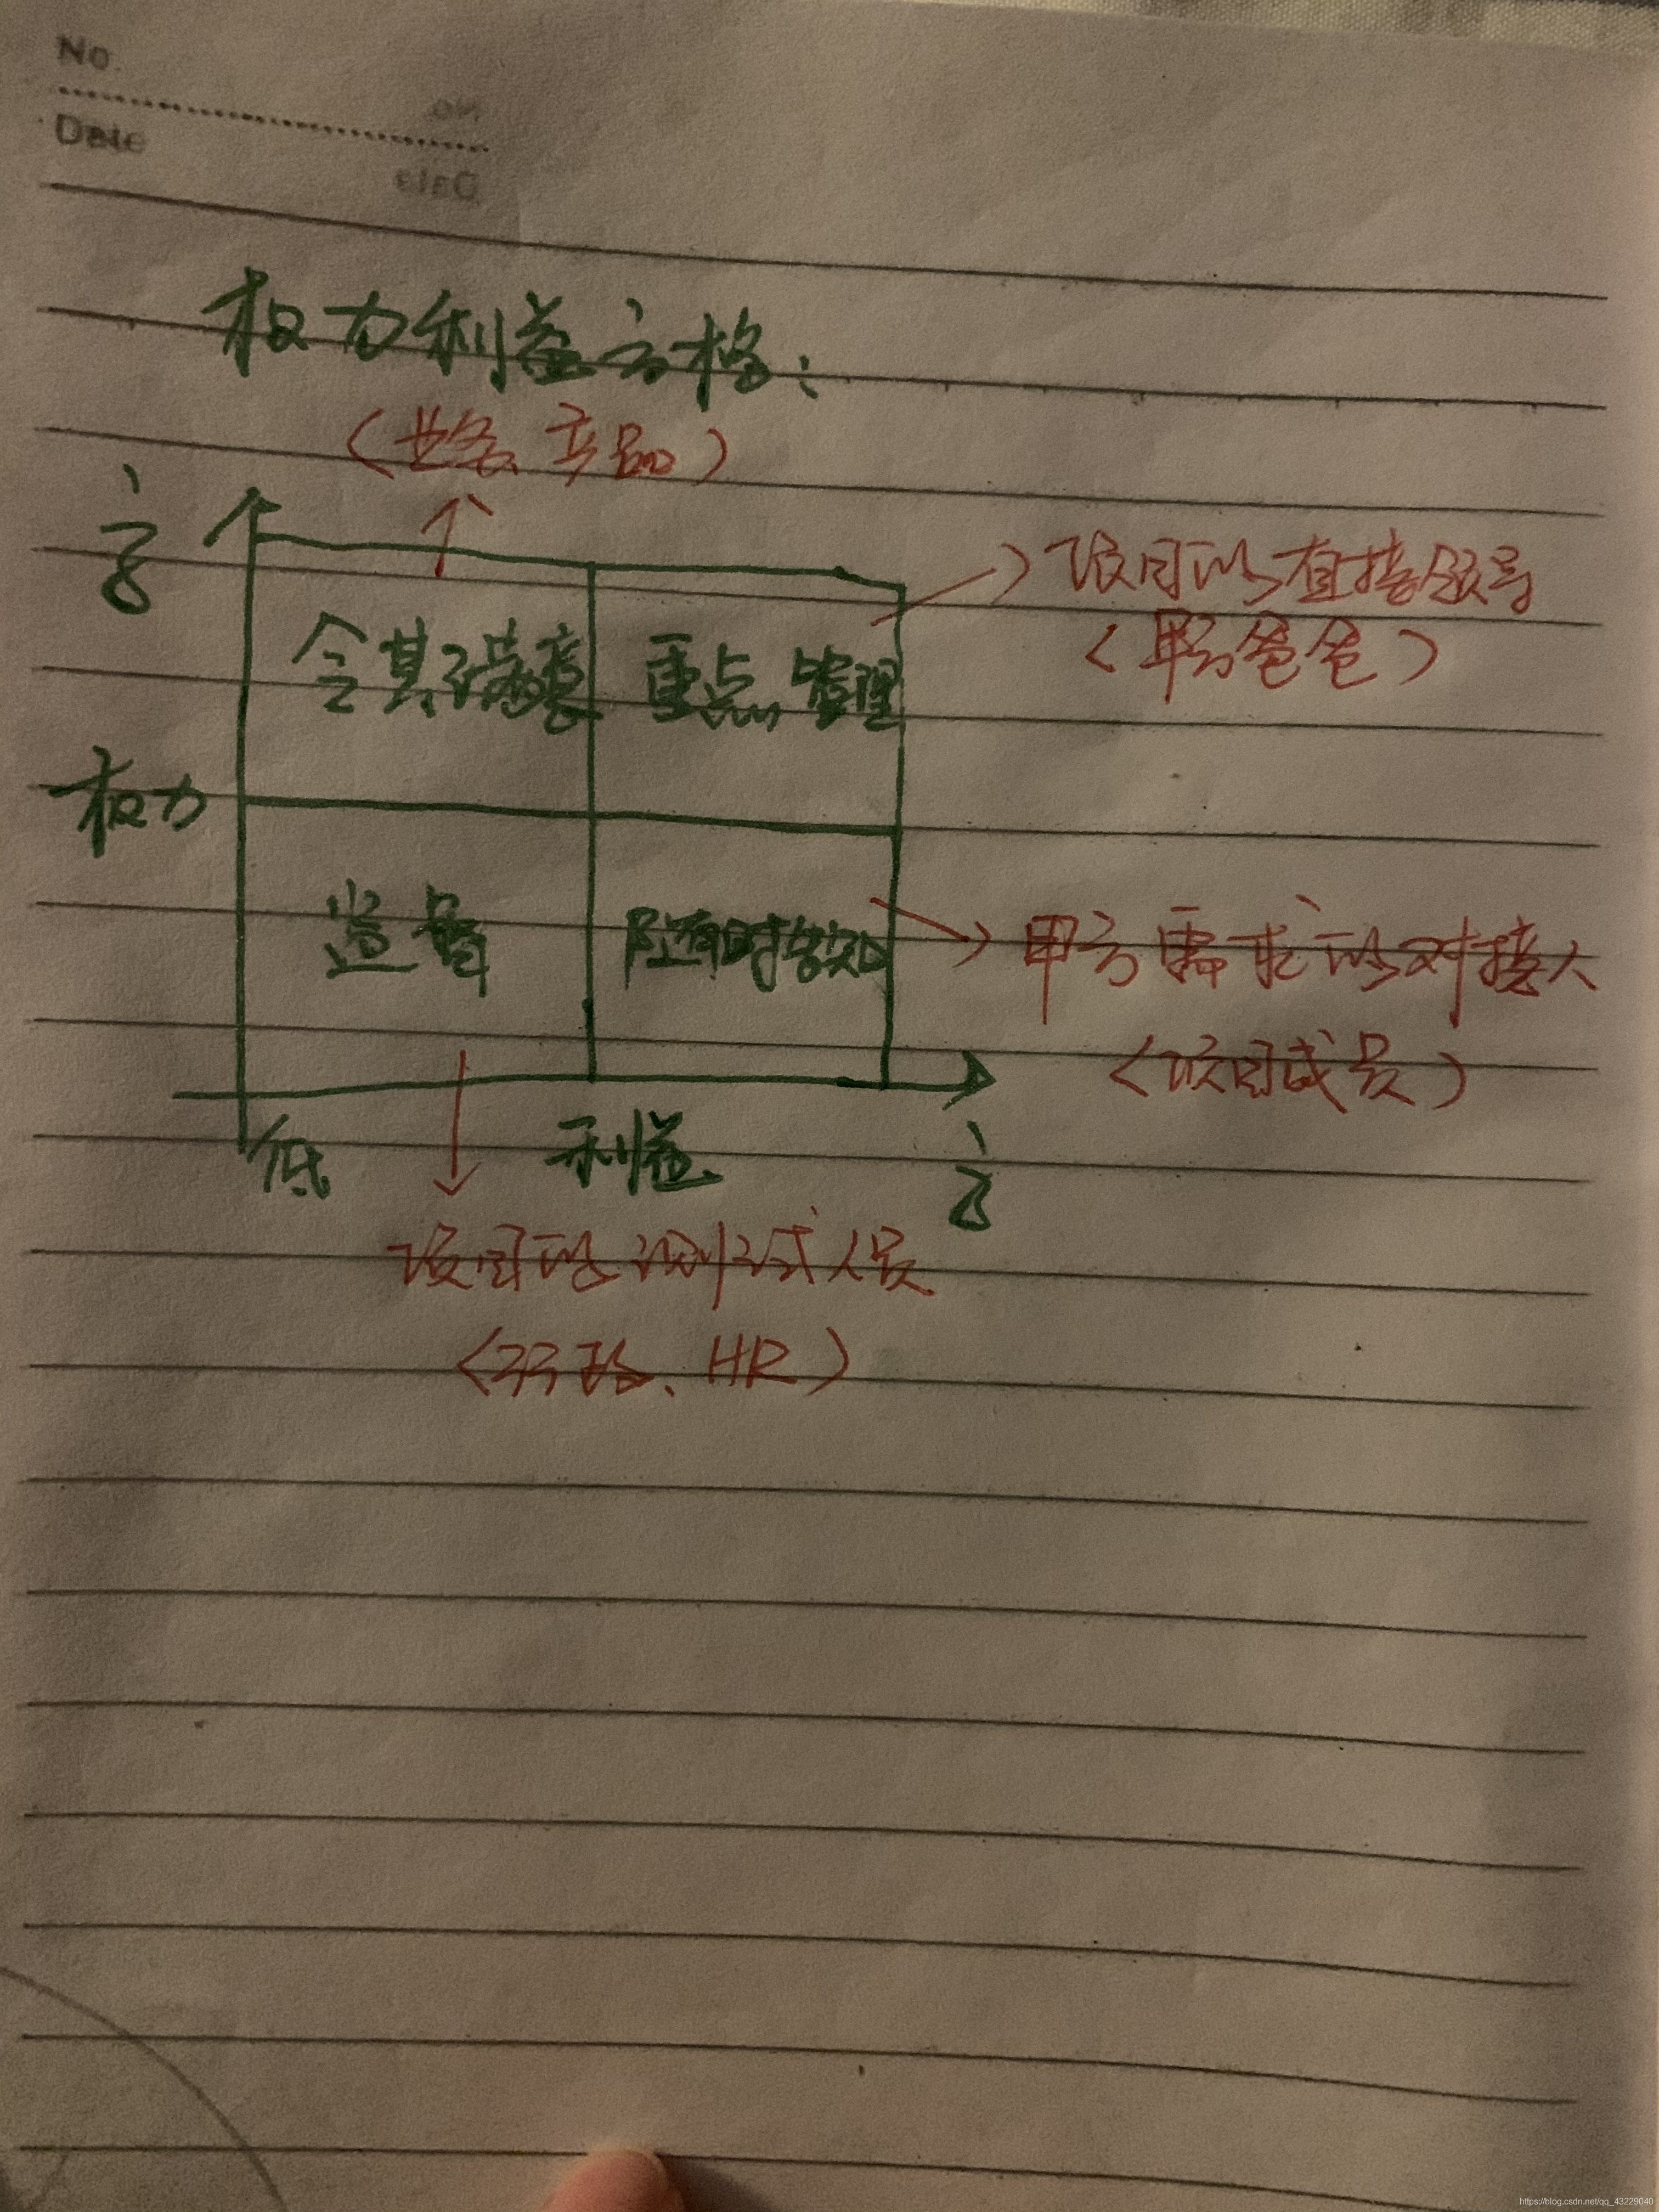 No.
Date
权力利益方格：
（业务、产品）
高
令其满意
重点管理
项目的直接领导
（甲方爸爸）
权力
监督
随时告知
甲方需求的对接人
（项目成员）
低
利益
高
项目的测试人员
HR）
https://blog.csdn.net/qq_43229040